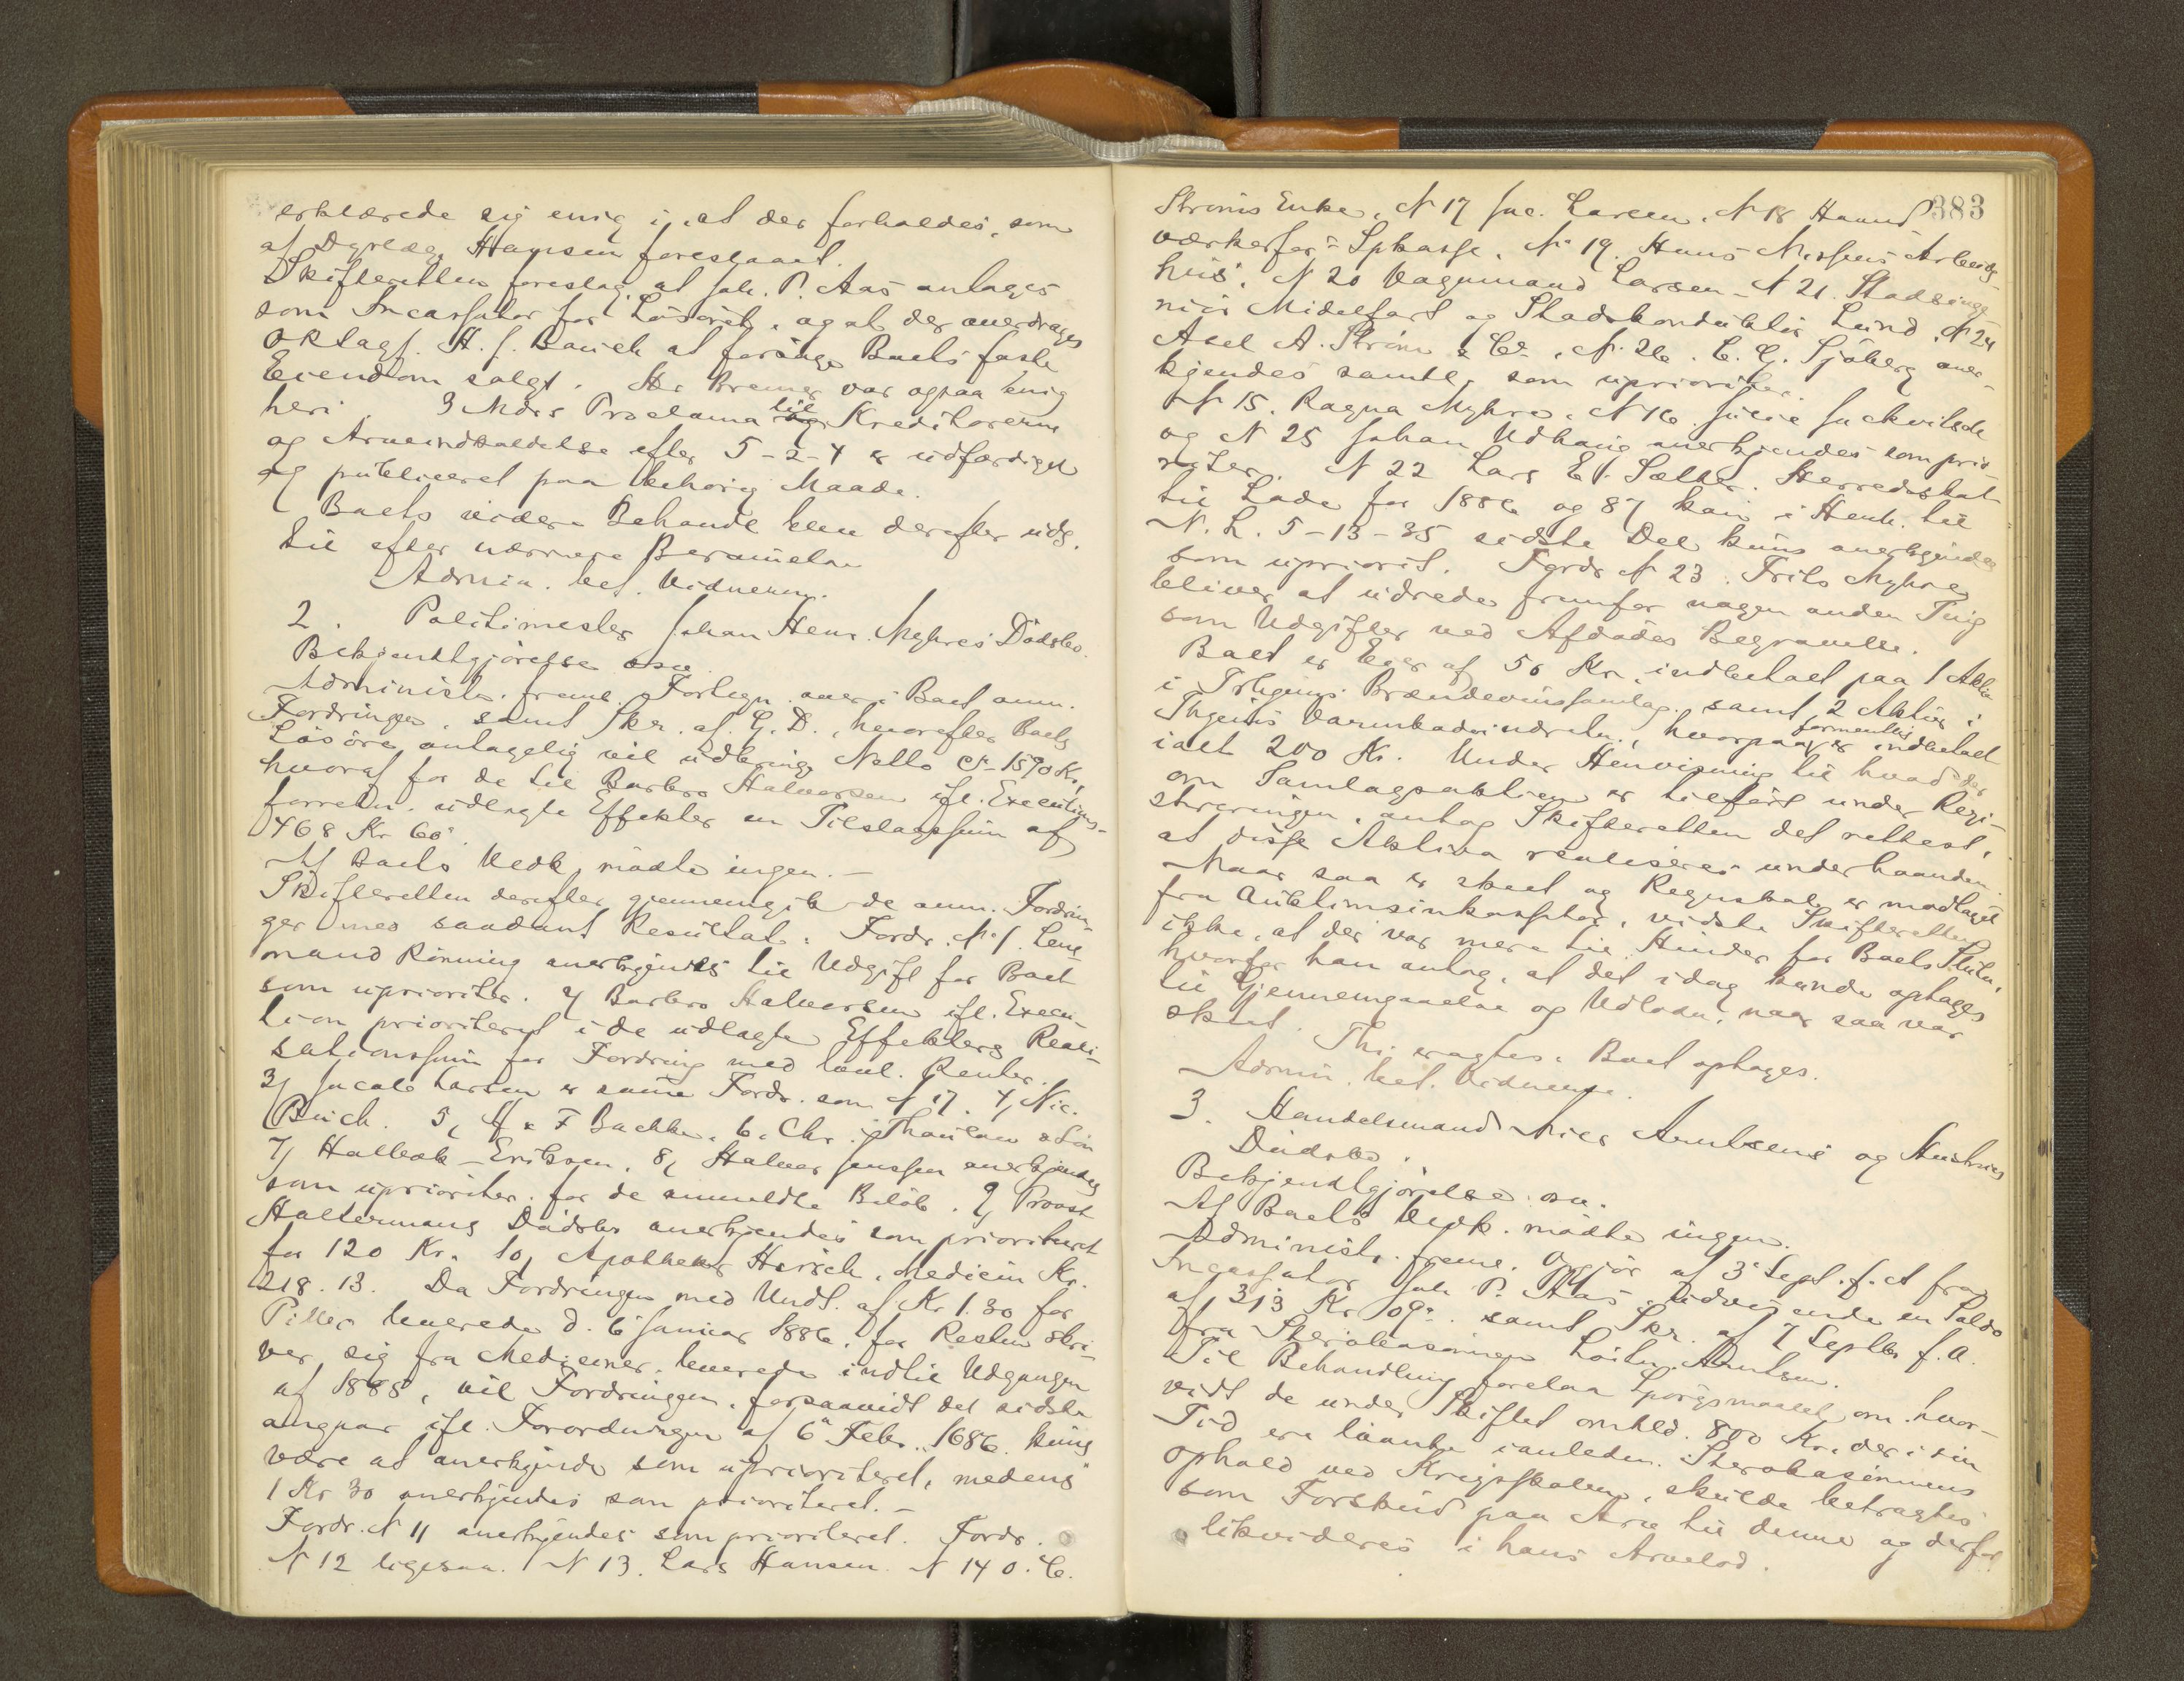 erklærede sig enig i, at der forholdes, som
af Dyrlæge Hansen foreslaaet.
Skifteretten foreslog, at Joh. P. Aas antages
som Incassator for Løsøret, og at der overdrages
O R Sagf. H. J. Bauck at forsøge Boets faste
Eiendom solgt. Hr Bremer var ogsaa enig
heri. 3 Mdrs Proclama til Kreditorerne
og Arveindkaldelse efter 5-2-4 er udfærdiget
og publiceret paa behørig Maade.
Boets videre Behandl blev derefter uds.
til efter nærmere Berammelse
Admin. bet. Vidnerne.
2. Politimester Johan Henr. Myhres Dødsbo.
Bekjendtgjørelse osv.
Administr. freml. Fortegn. over i Boet anm.
Fordringer, samt Skr. af G. D., hvorefter Boets
Løsøre antagelig vil udbringe Netto Ca 1590 Kr,
hvoraf for de til Barbro Halvorsen ifl. Executions-
forretn. udlagte Effekter en Tilslagssum af
468 Kr 60ø.
Af Boets Vedk. mødte ingen.-
Skifteretten derefter gjennemgik de anm. Fordrin-
ger med saadant Resultat: Fordr. No 1. Lens-
mand Rønning anerkjendes til Udgift for Boet
som uprioriter. 2, Barbro Halvorsen ifl. Execu-
tion prioriteret i de udlagte Effekters Reali-
sationssum for Fordring med lovl. Renter.
3, Jacob Larsen er samme Fordr. som N 17. 4, Nic.
Buch. 5, H & F Bachke. 6, Chr. Thaulow & Søn
7, Halbak-Eriksen. 8, Halvor Jenssen anerkjendes
som uprioriter. for de anmeldte Beløb. 9, Provst
Haltermans Dødsbo anerkjendes som prioriteret
for 120 Kr. 10, Apotheker Hirsch, Medicin Kr.
218.13. Da Fordringen med Undt. af Kr 1.30 for
Piller leverede d. 6 Januar 1886, for Resten skri-
ver sig fra Mediciner, leverede indtil Udgangen
af 1885, vil Fordringen, forsaavidt det sidste
angaar ifl. Forordningen af 6te Febr. 1686. kuns
være at anerkjende som uprioriteret, medens
1 Kr 30 anerkjendes som prioriteret.-
Fordr. N 11 anerkjendes som prioriteret. Fordr.
N 12 ligesaa. N 13. Lars Hansen. N 14 O. C.
383
Strøms Enke, N 17 Jac. Larsen. N 18 Haand-
værkerfor: Spkasse. No 19. Hans Nissens Arbeids-
hus. N 20 Vognmand Larsen - N 21. Stadsinge-
niør Midelfart og Stadskonduktør Lund. N 24
Axel A. Strøm & Co. N. 26. C. G. Sjøberg aner-
kjendes samtl. som uprioriter.
N 15. Ragna Myhre. N 16
og N 25 Johan Udhaug anerkjendes som prio-
riter. N 22 Lars E. Sæther. Herredsskat
til Lade for 1886 og 87 kan i Henh. til
N. L. 5-13-35 sidste Del kuns anerkjendes
som upriorit. Fordr N 23. Frits Myhre
bliver at udrede fremfor nogen anden Ting
som Udgifter ved Afdødes Begravelse.
Boet er Eier af 50 Kr. indbetalt paa 1 Aktie
i Trhjems Brændevinssamlag. samt 2 Aktier i
Thjems Varmbadsindretn., hvorpaa formentlig er indbetalt
ialt 200 Kr. Under Henvisning til hvad der
om Samlagsaktien er tilført under Regi-
streringen, antog Skifteretten det rettest,
at disse Aktiva realiseres underhaanden.
Naar saa er skeet og Regnskab er modtaget
fra Auktionsinkassator, vidste Skifteretten
ikke, at der var mere til Hinder for Boets Slutn.
hvorfor han antog, at det idag kunde optages
til Gjennemgaaelse og Udlodn., naar saa var
skeet.
Thi eragtes: Boet optages.
Admin. bet. Vidnerne.
3. Handelsmand Nils Arntsens og Hustrues
Dødsbo.
Bekjendtgjørelse osv.
Af Boets Vedk. mødte ingen.
Administr. freml. Opgjør af 3 Sept. f. A fra
Incassator Joh P. Aas, udvisende en Saldo
af 313 Kr 09ø. samt Skr. af 7 Septbr f. A.
fra Sterbosønnen Løitn. Arntsen.
Til Behandling forelaa Spørgsmaalet om, hvor-
vidt de under Skiftet omhld. 800 Kr, der i sin
Tid ere laante i anledn. Sterbosønnens
ophold ved Krigsskolen, skulde betragtes
som Forskud paa Arv til denne og derfor
likvideres i hans Arvelod.